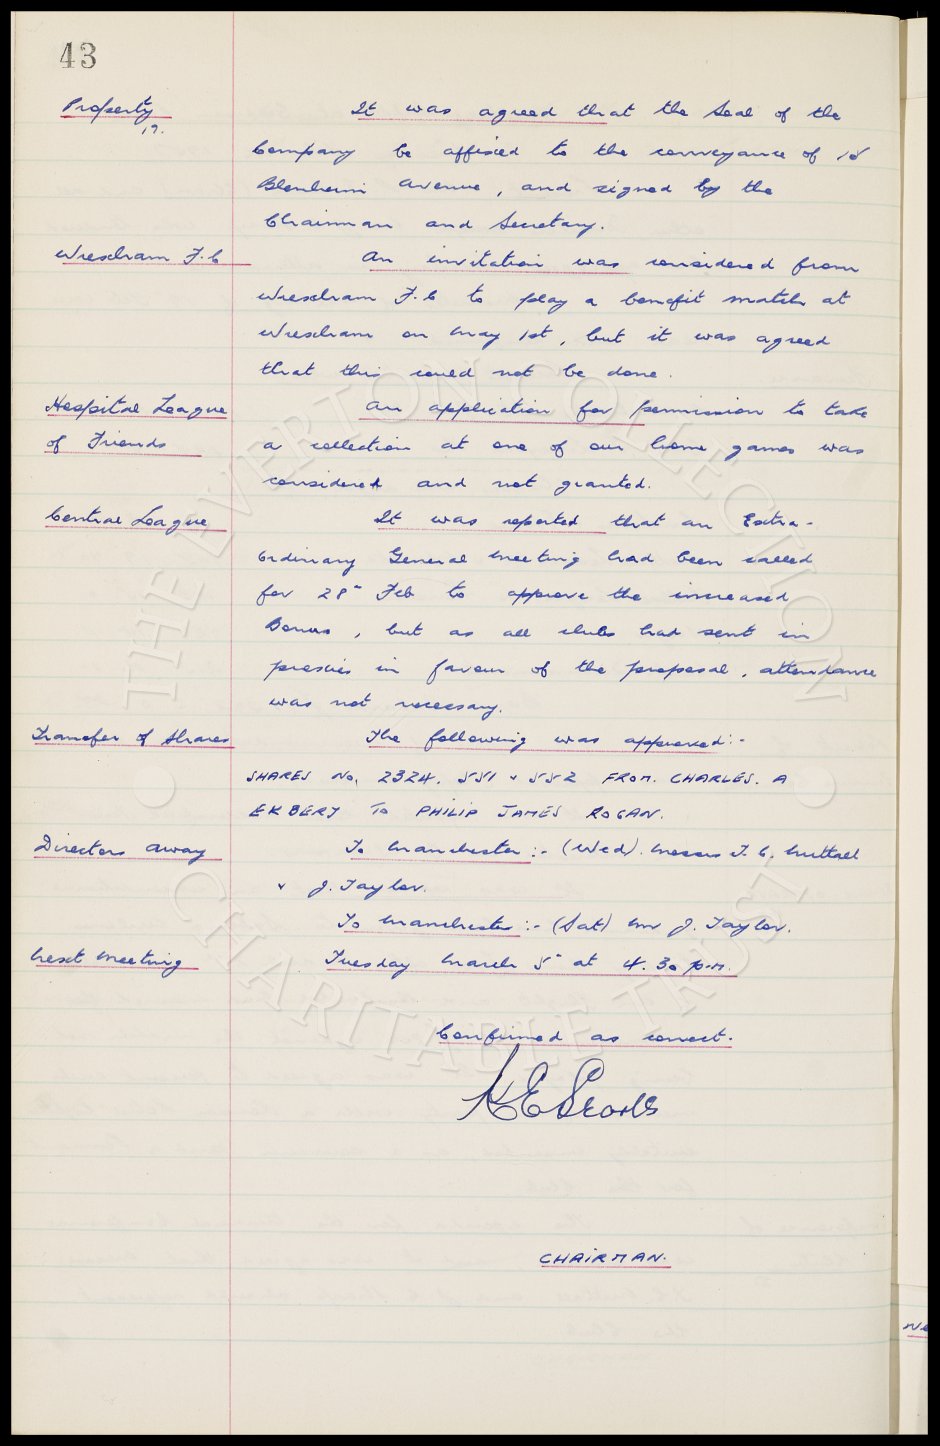 43
Property
19.
It was agreed that the Seal of the
Company be affixed to the conveyance of 18
Blenheim Avenue, and signed by the
Chairman and Secretary.
Wrexham F.C
An invitation was considered from
Wrexham F.C to play a benefit match at
Wrexham on May 1st, but it was agreed
that this could not be done.
Hospital League
of Friends
An application for permission to take
a collection at one of our home games was
considered and not granted.
Central League
It was reported that an Extra-
ordinary General Meeting had been called
for 28" Feb to approve the increased
Bonus, but as all clubs had sent in
proxies in favour of the proposal, attendance
was not necessary.
Transfer of Shares
The following was approved:-
SHARES No. 2324. 551 & 552 FROM. CHARLES. A
EKBERY TO PHILIP JAMES ROGAN.
Directors away
To Manchester :- (Wed). Messrs T. C. Nuttall
& J. Taylor.
To Manchester :- (Sat) Mr J. Taylor.
Next Meeting
Tuesday March 5" at 4.30 p.m.
Confirmed as correct.
CHAIRMAN.
THE EVERTON COLLECTION
CHARITABLE TRUST